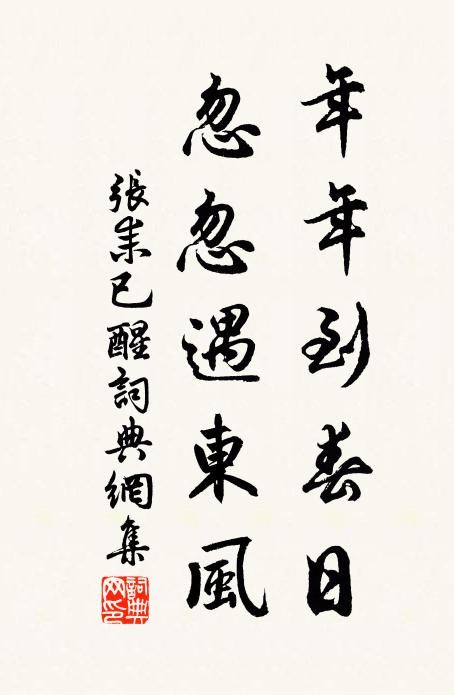 年年到春日
忽忽遇東風
張耒已醒詞典網集
詞典网印